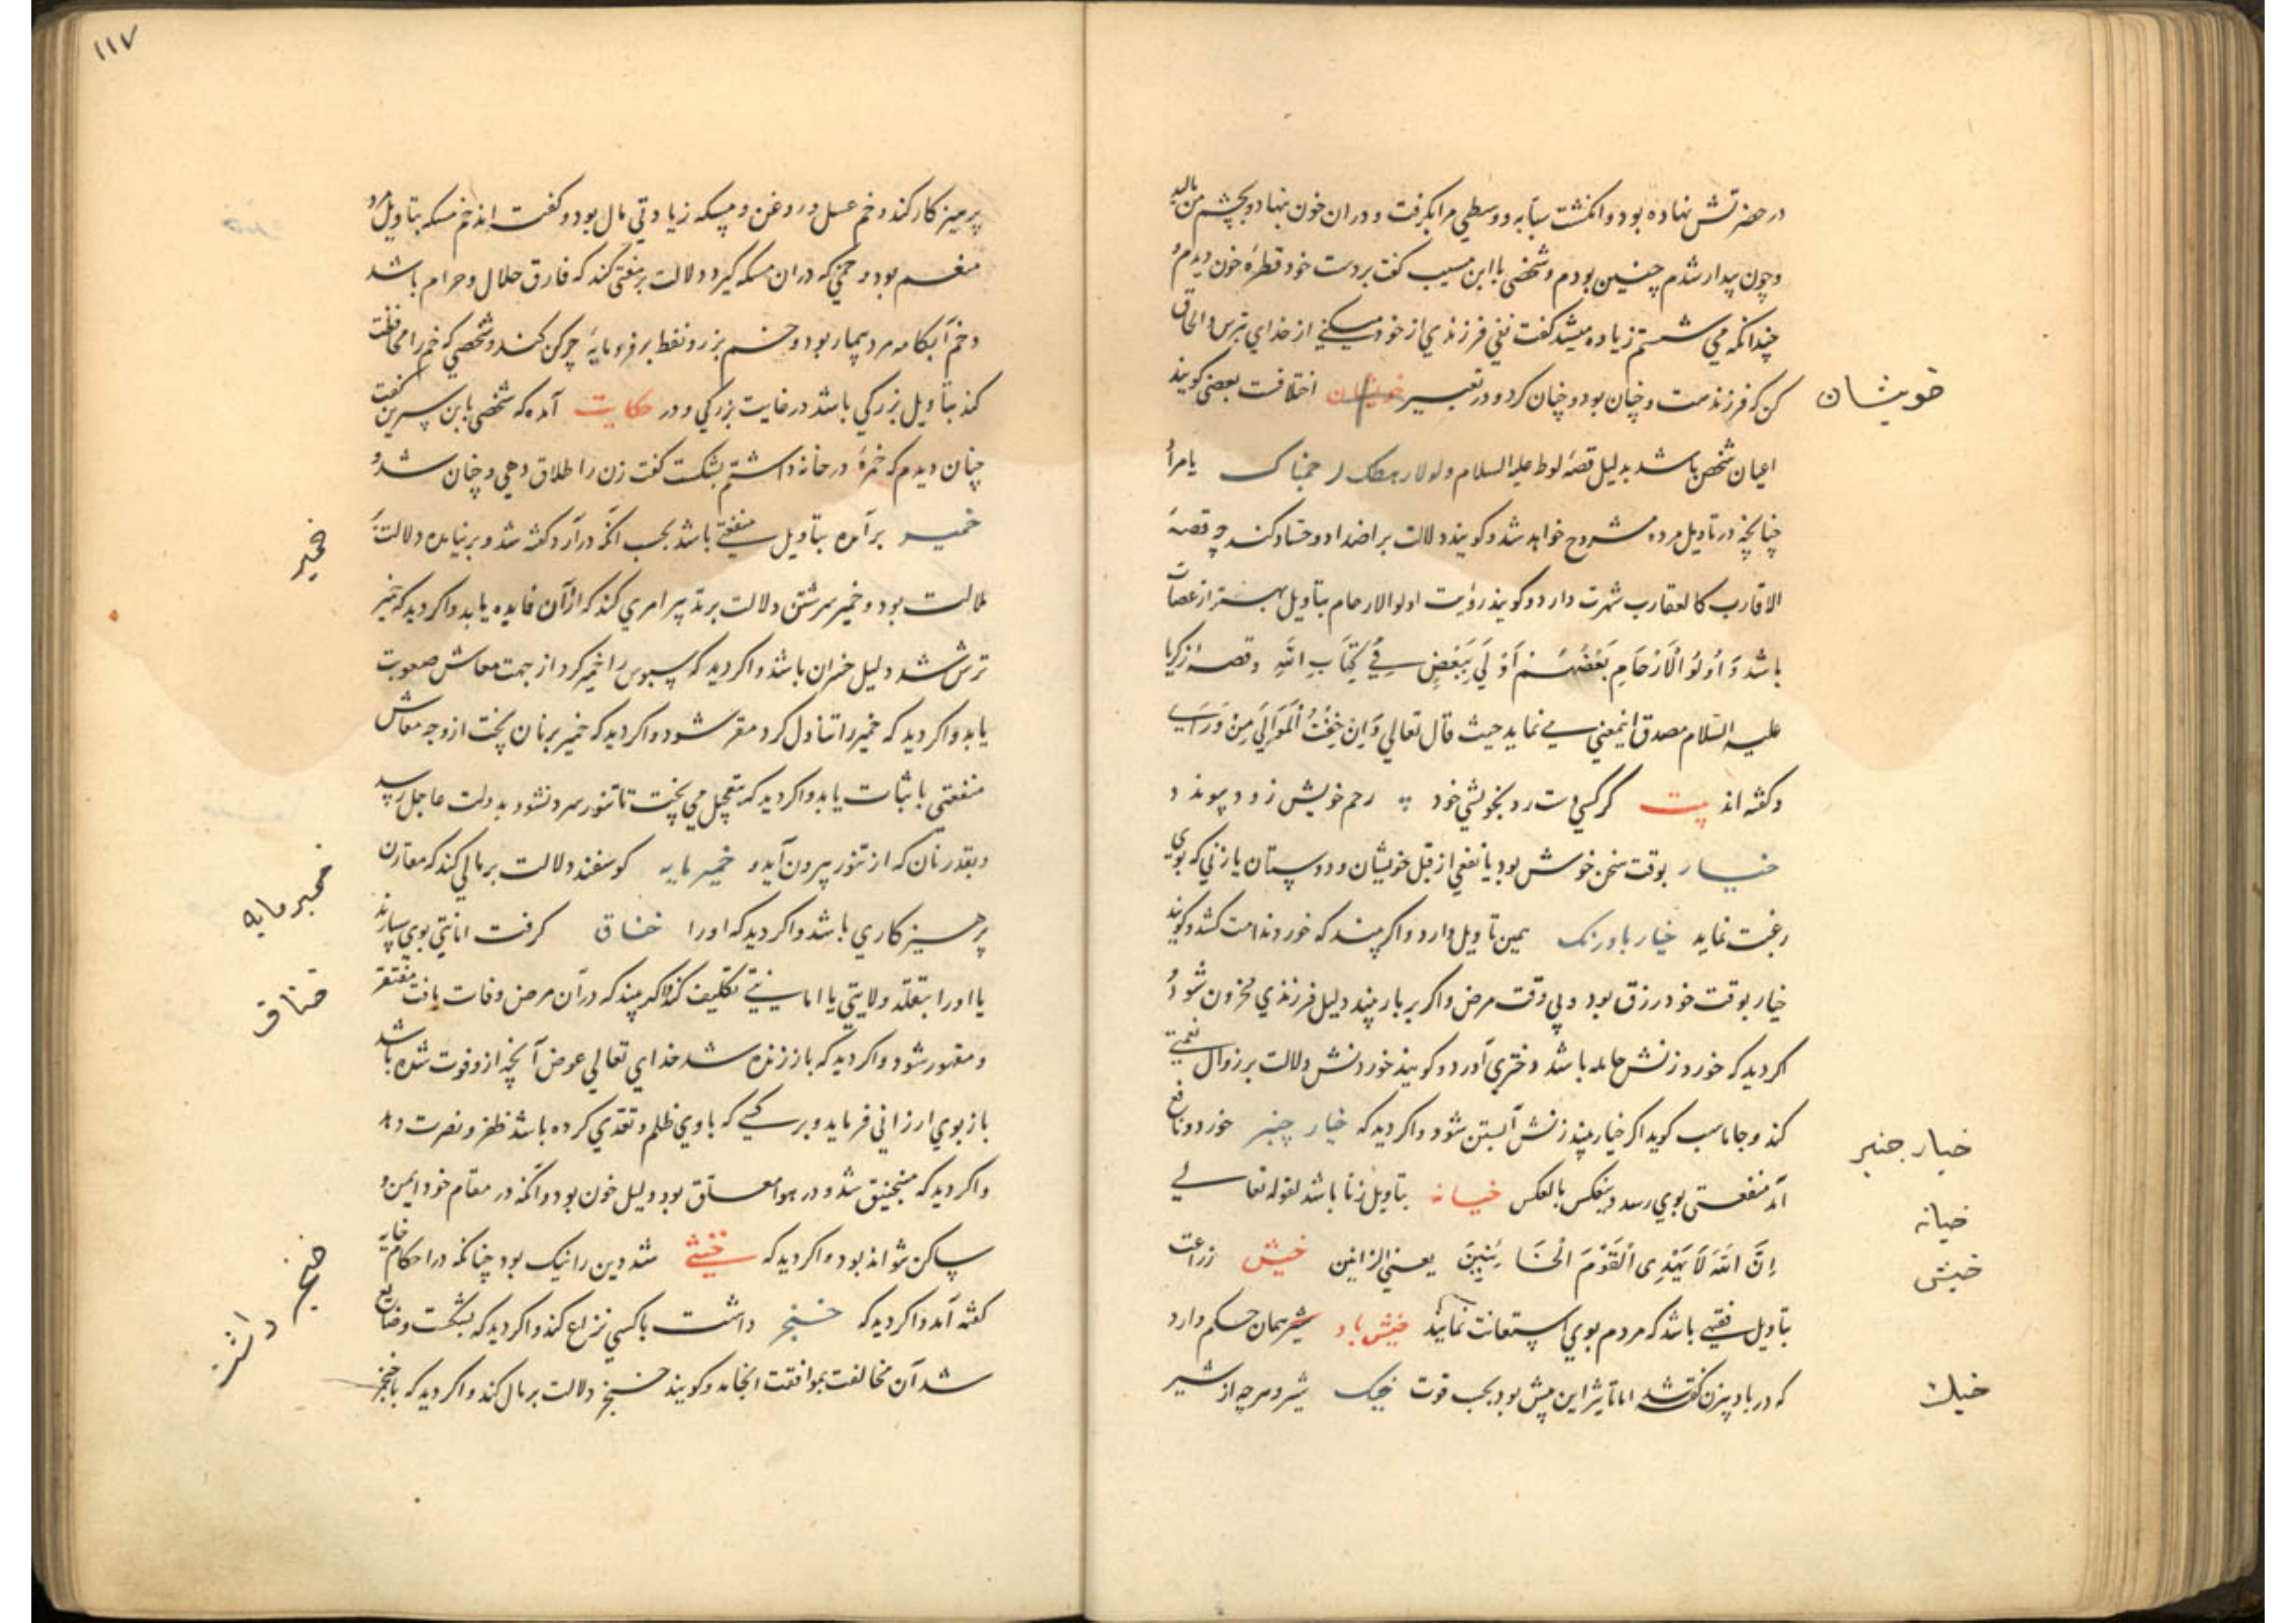 در حضرتش نهاده بود و انکشت سبابه و وسطی مرا بکرفت و در ان خون نهاد و بچشم من مالید
و چون بیدار شدم چنین بودم و شخصی با ابن مسیب کفت بر دست خود قطرهٔ خون دیدم و
چندانکه می شستم زیاده میشد کفت نفی فرزندی از خود میکنی از خدای بترس و الحاق
کن که فرزند تست و چنان بود و چنان کرد و در تعبیر خویشان اختلافست بعضی کویند
خویشان
اعیان شخص باشد بدلیل قصهٔ لوط علیه السلام ولولا رهطک لرجمناک یا مرأ
چنانچه در تاویل مرده مشروح خواهد شد و کویند دلالت بر اضداد و حساد کند چه قصهٔ
الاقارب کالعقارب شهرت دارد و کویند رؤیت اولوالارحام بتاویل بهتر از عصات
باشد وَ اُولُو الْاَرْحَامِ بَعْضُهُمْ اَوْلَی بِبَعْضٍ فِی کِتَابِ اللهِ و قصهٔ زکریا
علیه السلام مصدق اینمعنی می نماید حیث قال تعالی وَاِنِ خِفْتُ الْمَوَالِیَ مِنْ وَرَایی
و کفته اند بیت کر کسی دست رد بخویشی خود رحم خویش زود پیوندد
خیار بوقت سخن خوش بود یا نفعی از قبل خویشان و دوستان یا زنی که بوی
رغبت نماید خیار بادرنک همین تاویل دارد و اکر بیند که خورد ندامت کشد و کویند
خیار بوقت خود رزق بود و بی وقت مرض و اکر بر بار بیند دلیل فرزندی محزون شود و
اکر دید که خورد و زنش حامله باشد دختری آورد و کویند خوردنش دلالت بر زوال نعمتی
کند و جاماسب کوید اکر خیار بیند زنش آبستن شود و اکر دید که خیار چنبر خورد و نافع
خیار جنبر
آمد منفعتی بوی رسد و بعکس بالعکس خیانه بتاویل زنا باشد لقوله تعالی
خیانه
اِنَّ اللهَ لَا یَهْدِی الْقَوْمَ الْخَائِنِینَ یعنی الزانین خیش زراعت
خیش
بتاویل فقیهی باشد که مردم بوی استعانت نمایند خیش باد شیر همان حکم دارد
که در بادبزن کفته شد اما تاثیر این بیش بود بحسب قوت خیک شیر و هر چه از شیر
خیک
۱۱۷
پرهیزکار کند و خم عسل و روغن و مسکه زیادتی مال بود و کفته اند خم مسکه بتاویل مرد
منعم بود و خمی که در ان مسکه کیرد دلالت بر مفتی کند که فارق حلال و حرام باشد
و خم آبکامه مرد بیمار بود و خم بزر و نفط بر فرومایهٔ چرکن کند و شخصی که خم را محافظت
کند بتاویل بزرکی باشد در غایت بزرکی و در حکایت آمده که شخصی بابن سیرین کفت
چنان دیدم که خمرهٔ در خانه داشتم بشکست کفت زن را طلاق دهی و چنان شد و
خمیر برآمده بتاویل منفعتی باشد بحسب انکه درآرد کفته شد و برنیامده دلالت
خمیر
ملالت بود و خمیر سرشتن دلالت بر تدبیر امری کند که از آن فایده یابد و اکر دید که خمیر
ترش شد دلیل خسران باشد و اکر دید که سبوس را خمیر کرد از جهت معاش صعوبت
یابد و اکر دید که خمیر را تناول کرد مقر شود و اکر دید که خمیر بر نان پخت از وجه معاش
منفعتی با ثبات یابد و اکر دید که بتعجیل می پخت تا تنور سرد نشود بدولت عاجل رسد
و بقدر نان که از تنور بیرون آید و خمیر مایه کوسفند دلالت بر مالی کند که مقارن
خمیرمایه
پرهیزکاری باشد و اکر دید که او را خناق کرفت امانتی بوی سپارند
یا او را بتقلد ولایتی یا امانتی تکلیف کند و اکر بیند که در آن مرض وفات یافت مفتقر
خناق
و مقهور شود و اکر دید که باز زنده شد خدای تعالی عوض آنچه از و فوت شده باشد
باز بوی ارزانی فرماید و بر کسی که با وی ظلم و تعدی کرده باشد ظفر و نصرت دهد
و اکر دید که منجنیق شد و در هوا معلق بود دلیل خون بود و آنکه در مقام خود ایمن و
ساکن نتواند بود و اکر دید که خنثی شد دین را نیک بود چنانکه در احکام خایه
کفته آمد و اکر دید که خنجر داشت با کسی نزاع کند و اکر دید که بشکست و ضایع
خنجر داشتن
شد آن مخالفت بموافقت انجامد و کویند خنجر دلالت بر مال کند و اکر دید که با خنجر